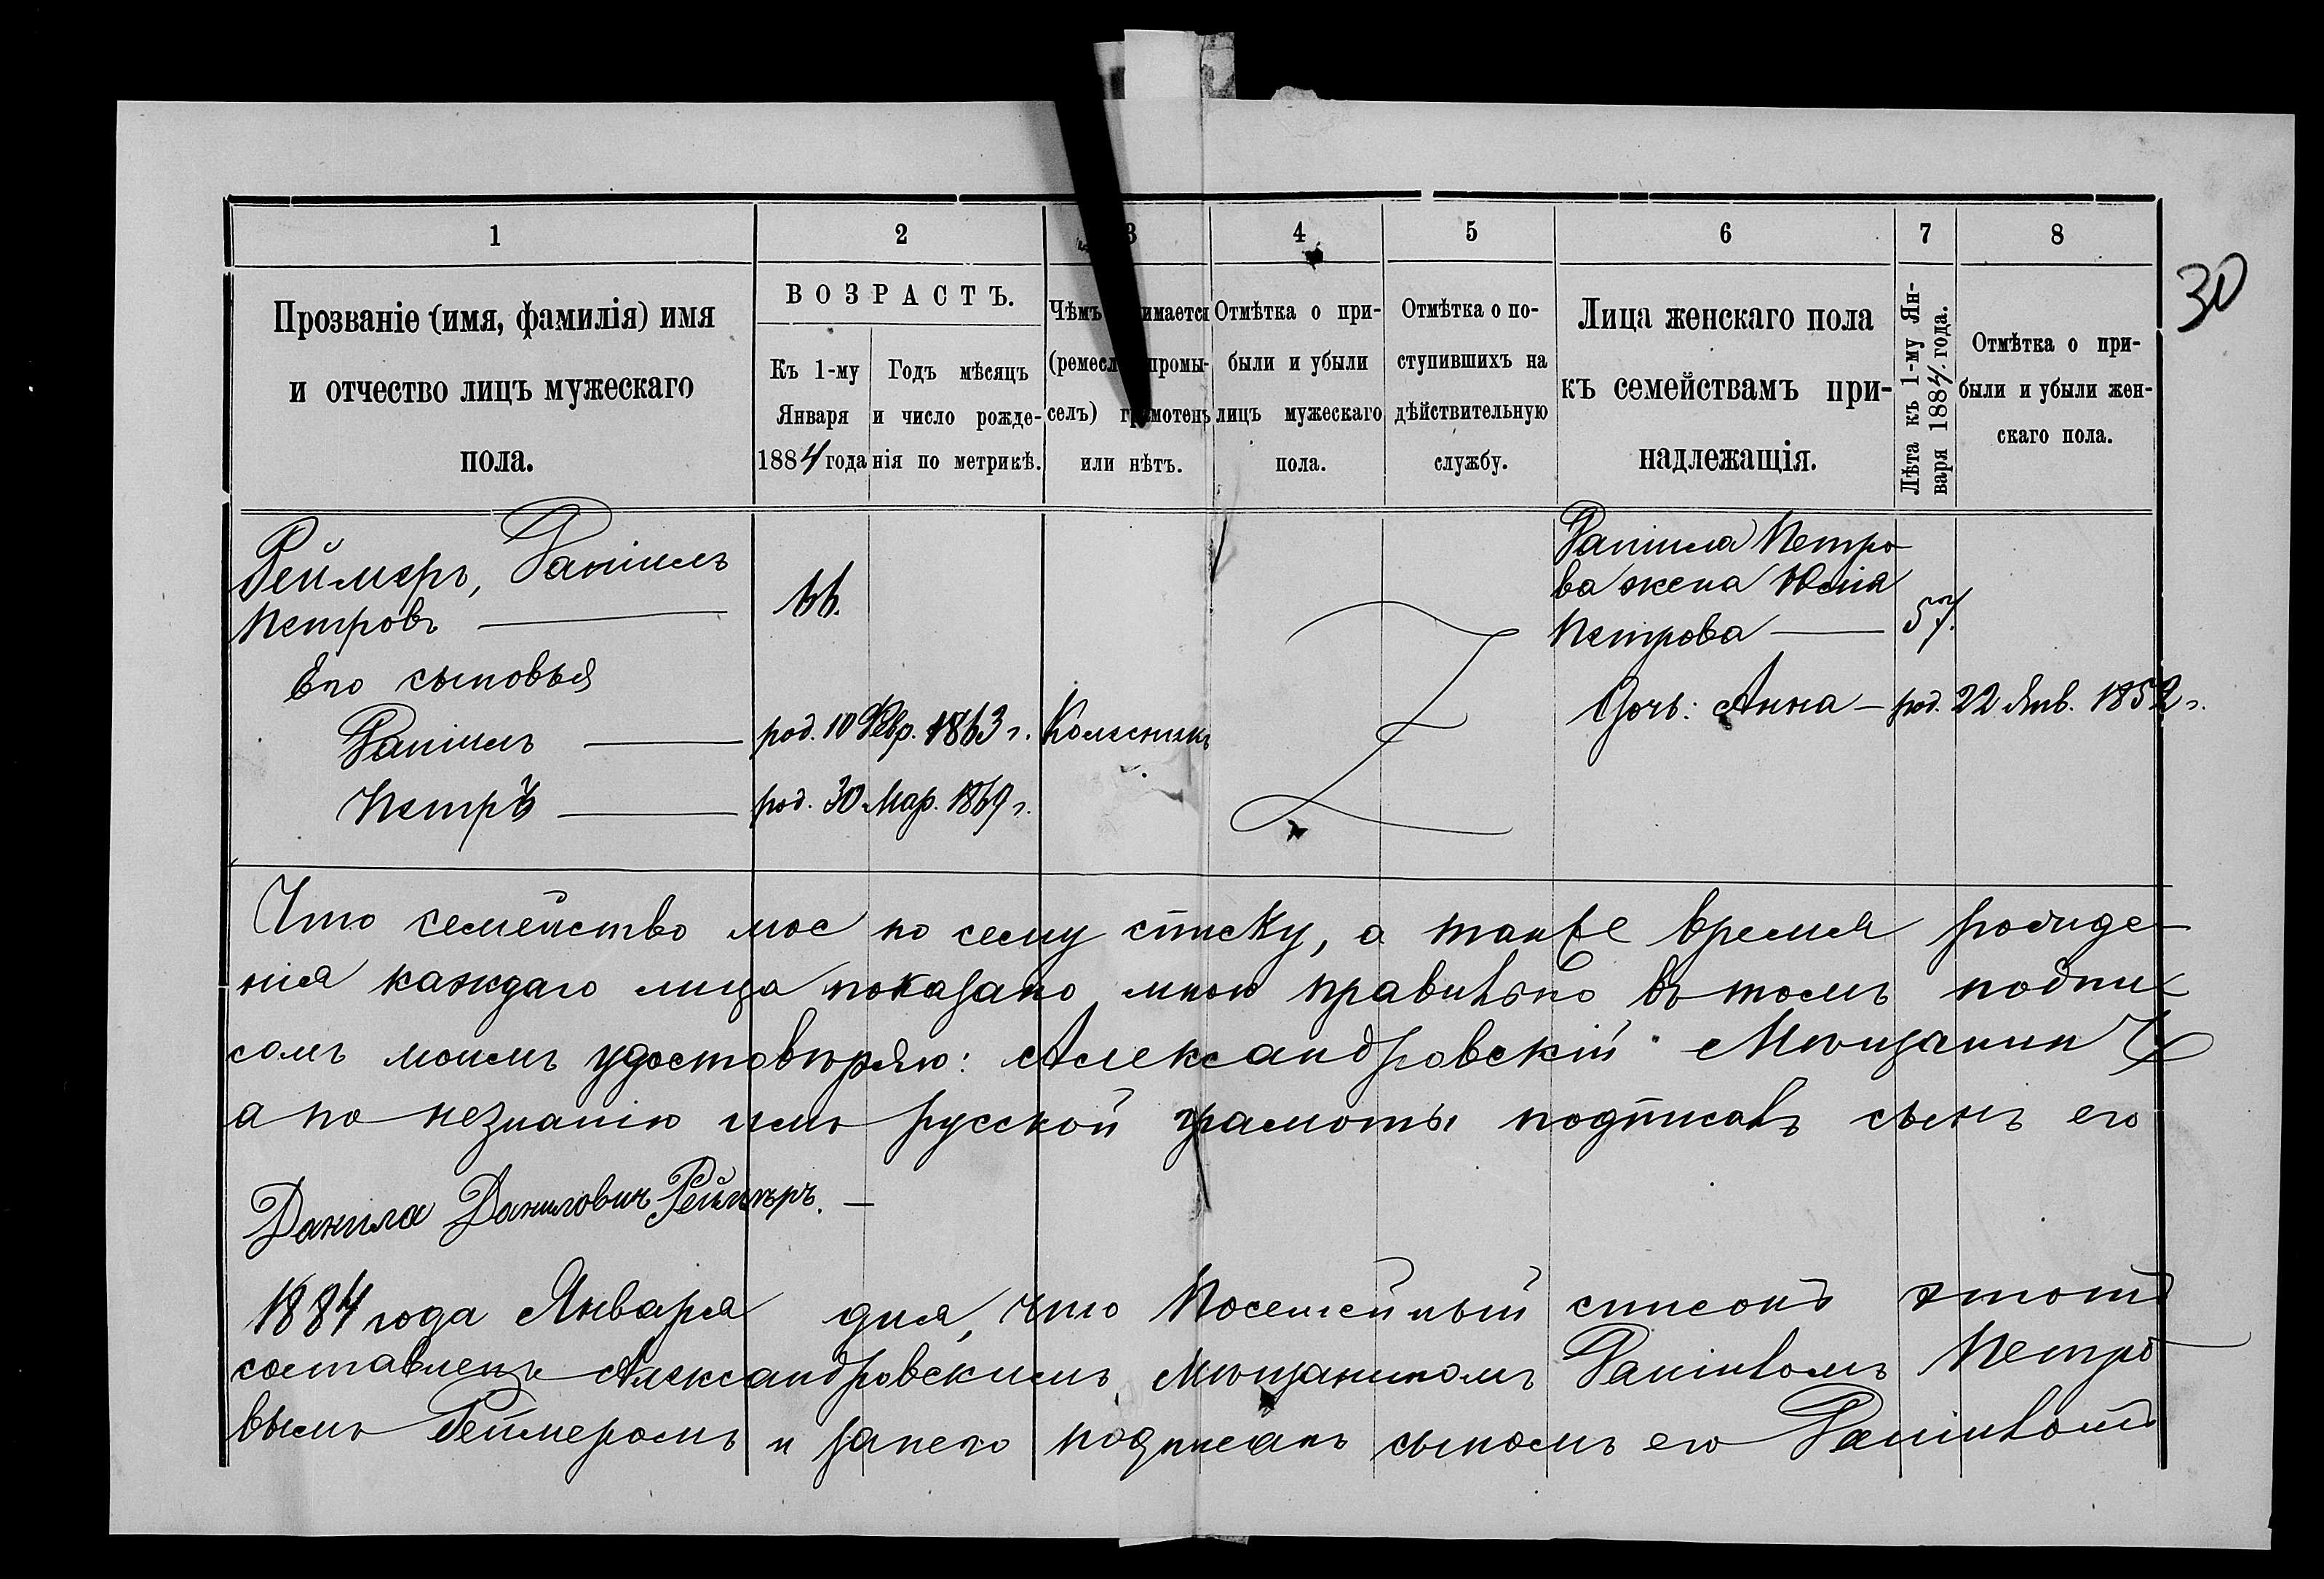 30
1 2 3 4 5 6 7 8
Прозваніе (имя, фамилія) имя
и отчество лицъ мужескаго
пола.
ВОЗРАСТЪ.
Къ 1-му
Января
1884 года
Годъ мѣсяцъ
и число рожде-
нія по метрикѣ.
Чѣмъ имается
(ремесл промы-
селъ) грамотенъ
или нѣтъ.
Отмѣтка о при-
были и убыли
лицъ мужескаго
пола.
Отмѣтка о по-
ступившихъ на
дѣйствительную
службу.
Лица женскаго пола
къ семействамъ при-
надлежащія.
Лѣта къ 1-му Ян-
варя 1884. года.
Отмѣтка о при-
были и убыли жен-
скаго пола.
Реймеръ, Даніилъ
Петровъ — 66.
Его сыновья
Даніилъ — род. 10 Февр. 1863 г. Колесникъ
Петръ — род. 30 Мар. 1869 г.
Даніила Петро-
ва жена
Петрова — 57.
Дочь: Анна — род. 22 Янв. 1852 г.
Что семейство мое по сему списку, а также время рожде-
нія каждаго лица показано мною правильно въ томъ подпи-
сомъ моимъ удостовѣряю: Александровскій Мѣщанин
а по незнанію имъ русской грамоты подписалъ сынъ его
Данила Даниловичъ Реймѣръ. —
1884 года Января дня, что Посемейный списокъ этотъ
составленъ Александровскимъ Мѣщаниномъ Даніиломъ Петро-
вымъ Реймеромъ и за него подписанъ сыномъ его Даніиломъ